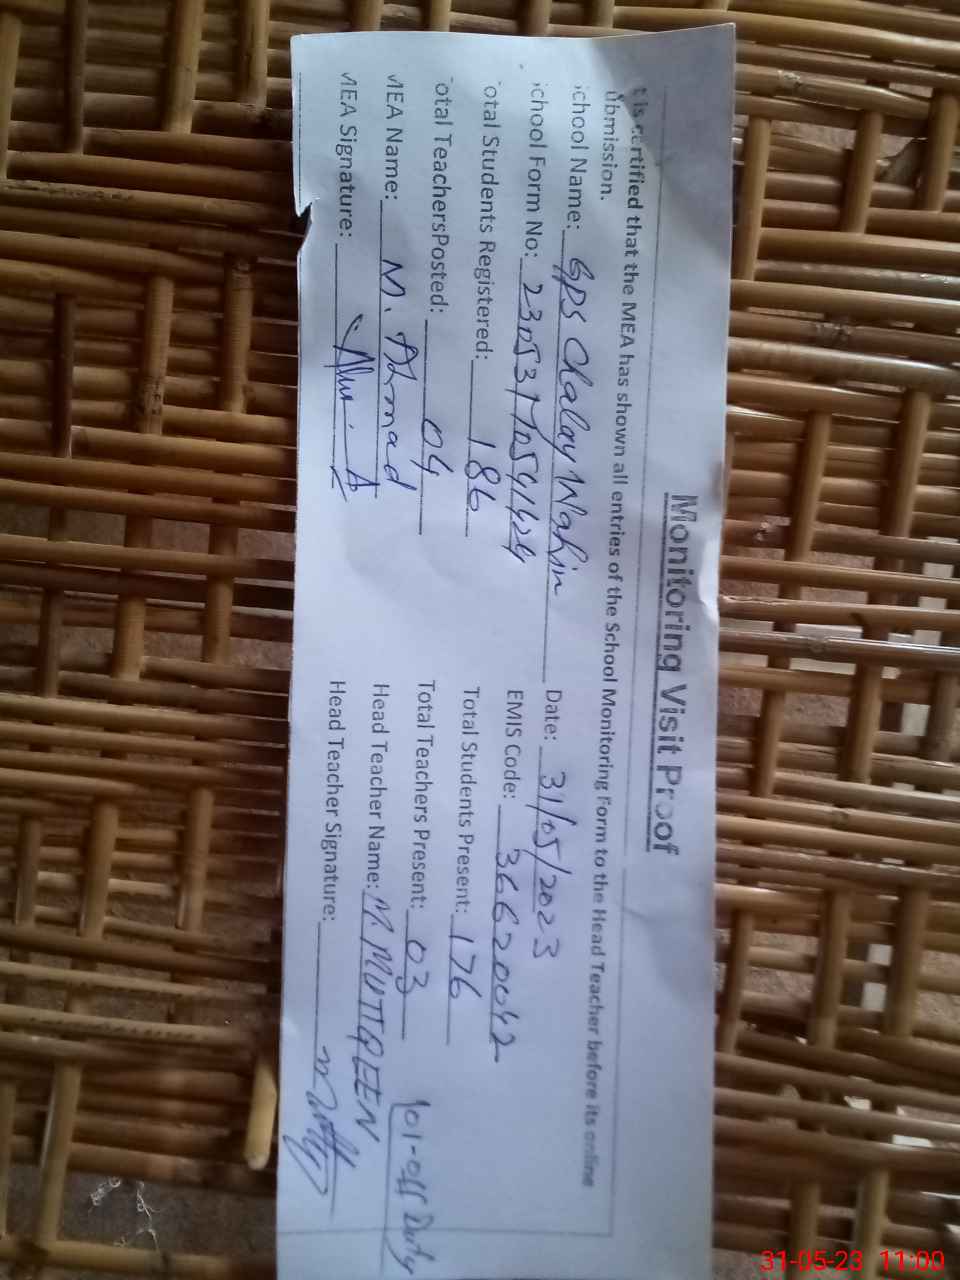 Monitoring Visit Proof
t is certified that the MEA has shown all entries of the School Monitoring Form to the Head Teacher before its online
ubmission.
chool Name: GPS Chalay Wahin Date: 31/05/2023
chool Form No: EMIS Code: 36620042
otal Students Registered: 186 Total Students Present: 176
otal TeachersPosted: 04 Total Teachers Present: 03 01-off Duty
MEA Name: M. Ahmad Head Teacher Name: M. MUTTQEEN
MEA Signature: Head Teacher Signature:
31-05-23 11:00